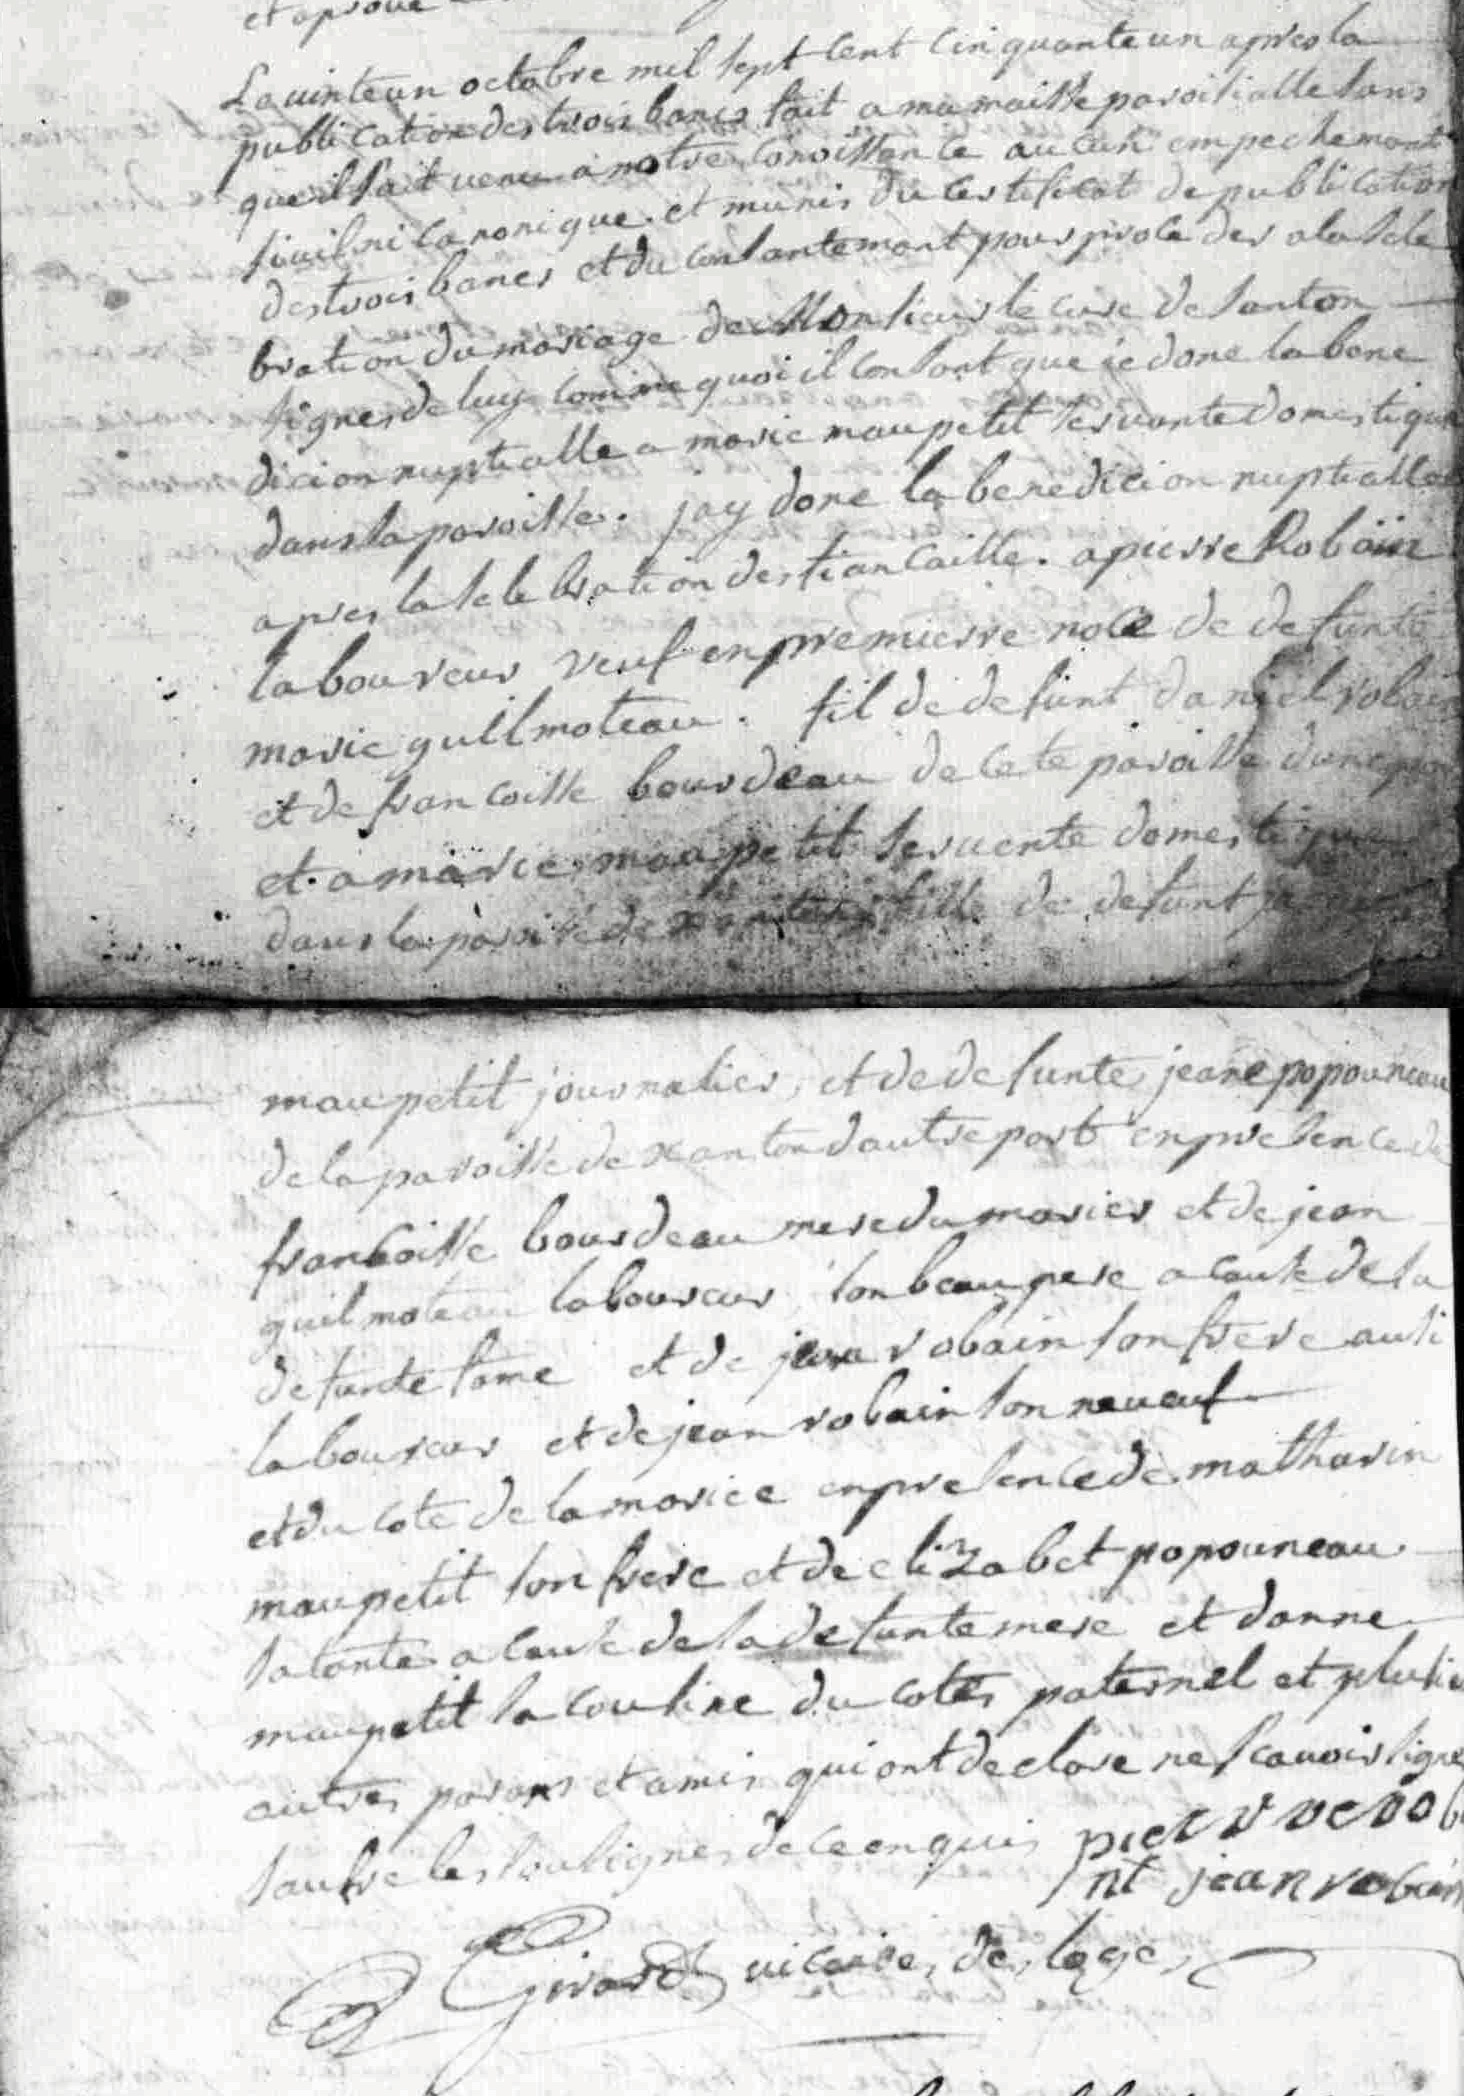 et aprouve
Le vinteun octobre mil sept cent cinquanteun apres la
publication des trois bancs fait a ma maisse paroissialle sans
que il sait venu a notre conoissance aucun empechemant
siuil ni canonique. et munis du certificat de publication
des trois bancs et du consantemant pour proceder a la sele
bration du mariage de Monsieur le cure de santon
signes de luy comme quoi il consant que ie done la bene
dicion nuptialle a marie maupetit servante domestique
dans la paroisse. jay done la benedicion nuptialle
apres la selebration des fiancaille. a pierre Robain
laboureur veuf en premierre noce de defunte
marie guillmoteau. fil de defunt daniel robain
et de francoisse bourdeau de cete paroisse dune part
et a marie maupetit servente domestique
dans la paroisse de xanton fille de defunt
maupetit journalier, et de defunte jeane popouneau
de la paroisse de xanton dautre part en presence de
francoisse bourdeau mere du marier et de jean
guilmoteau laboureur son beaupere a cause de la
defunte fame et de jean robain son frere ausi
laboureur et de jean robain son neueuf
et du cote de la mariee en presence de matharin
maupetit son frere et de elizabet popouneau
sa tante a cause de la defunte mere et danne
maupetit sa cousine du cotes paternel et plusieu
autres parans et amis qui ont declare ne scauoir signe
saufre les sousignes de ce enquis pierre rob
nt jean robain
Girard vicaire, de, loge,